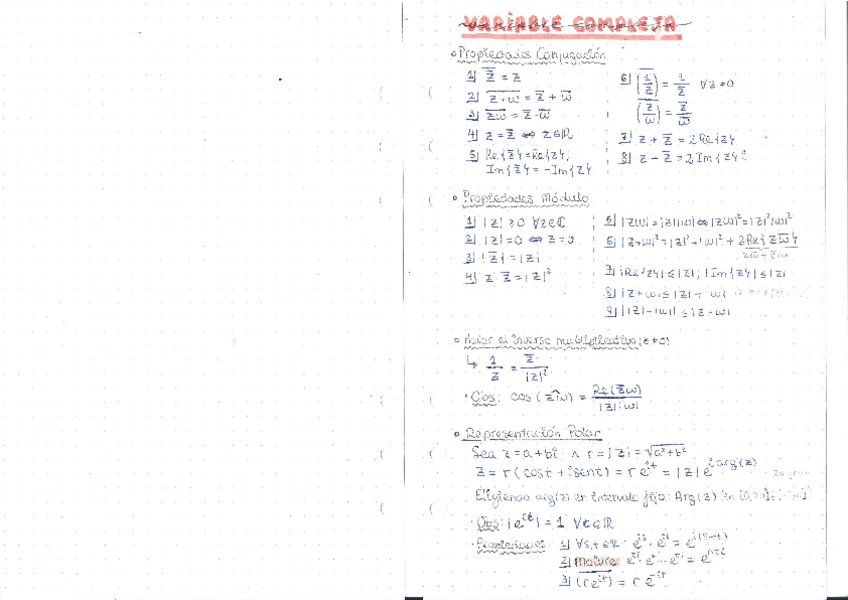 VARIABLE COMPLEJA
• Propiedades Conjugación
1) z̿ = z
2) \overline{z+w} = z̄ + w̄
3) \overline{zw} = z̄·w̄
4) z = z̄ ⇔ z∈ℝ
5) Re{z̄} = Re{z};
Im{z̄} = -Im{z}
6) \overline{(1/z)} = 1/z̄ ∀z≠0
\overline{(z/w)} = z̄/w̄
7) z + z̄ = 2Re{z}
8) z - z̄ = 2Im{z}i
• Propiedades Módulo
1) |z| ≥ 0 ∀z∈ℂ
2) |z| = 0 ⇔ z = 0
3) |z̄| = |z|
4) z·z̄ = |z|²
5) |zw| = |z||w| ⇔ |zw|² = |z|²|w|²
6) |z+w|² = |z|² + |w|² + 2Re{zw̄}
7) |Re{z}| ≤ |z|; |Im{z}| ≤ |z|
8) |z+w| ≤ |z| + |w|
9) ||z|-|w|| ≤ |z-w|
• el inverso multiplicativo (z≠0)
↳ 1/z = z̄/|z|²
· Obs: cos(zw) = Re(z̄w)/|z||w|
• Representación Polar
Sea z = a+bi ∧ r = |z| = √(a²+b²)
z = r(cost + isent) = re^{it} = |z|e^{i arg(z)}
Eligiendo arg(z) en intervalo fijo: Arg(z)
· Obs: |e^{it}| = 1 ∀t∈ℝ
· Propiedades: 1) ∀s,t∈ℝ: e^{is}·e^{it} = e^{i(s+t)}
2) Moivre
3) \overline{(re^{it})} = re^{-it}